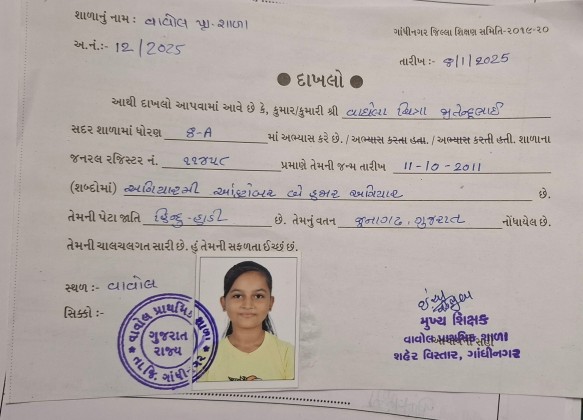 શાળાનું નામ : વાવોલ પ્રા. શાળા
ગાંધીનગર જિલ્લા શિક્ષણ સમિતિ-૨૦૧૯-૨૦
અ.નં.:- 12/2025
તારીખ :- 8/1/2025
દાખલો
આથી દાખલો આપવામાં આવે છે કે, કુમાર/કુમારી શ્રી વાઘેલા
સદર શાળામાં ધોરણ 8-A માં અભ્યાસ કરે છે. / અભ્યાસ કરતા હતા. / અભ્યાસ કરતી હતી. શાળાના
જનરલ રજિસ્ટર નં. પ્રમાણે તેમની જન્મ તારીખ 11-10-2011
(શબ્દોમાં) અગિયારમી ઓક્ટોબર બે હજાર અગિયાર છે.
તેમની પેટા જાતિ હિન્દુ- છે. તેમનું વતન જુનાગઢ, ગુજરાત નોંધાયેલ છે.
તેમની ચાલચલગત સારી છે. હું તેમની સફળતા ઈચ્છું છું.
સ્થળ :- વાવોલ
સિક્કો :-
વાવોલ પ્રાથમિક શાળા
ગુજરાત
રાજ્ય
તા.જિ. ગાંધીનગર
મુખ્ય શિક્ષક
વાવોલ પ્રાથમિક શાળા
શહેર વિસ્તાર, ગાંધીનગર